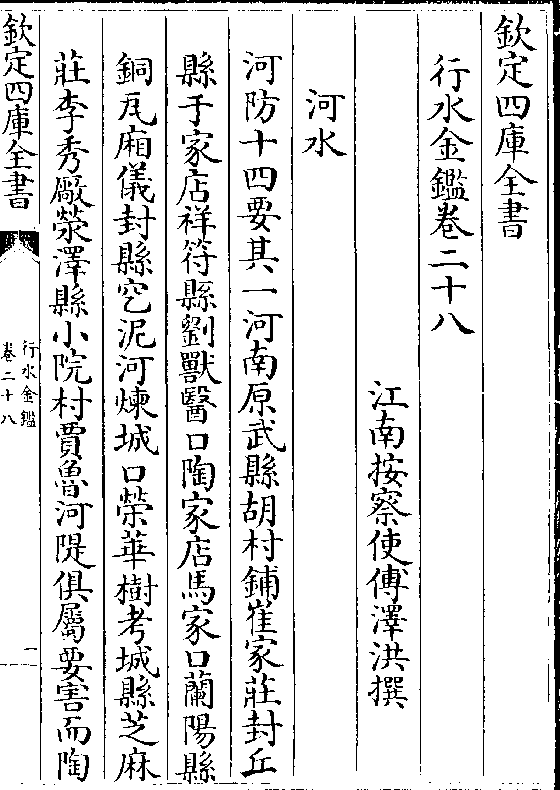 欽定四庫全書
行水金鑑卷二十八
江南按察使傅澤洪撰
河水
河防十四要其一河南原武縣胡村鋪崔家莊封丘
縣于家店祥符縣劉獸醫口陶家店馬家口蘭陽縣
銅瓦廂儀封縣窊泥河煉城口榮華樹考城縣芝麻
莊李秀厰滎澤縣小院村賈魯河隄俱屬要害而陶
欽定四庫全書
行水金鑑
卷二十八
一